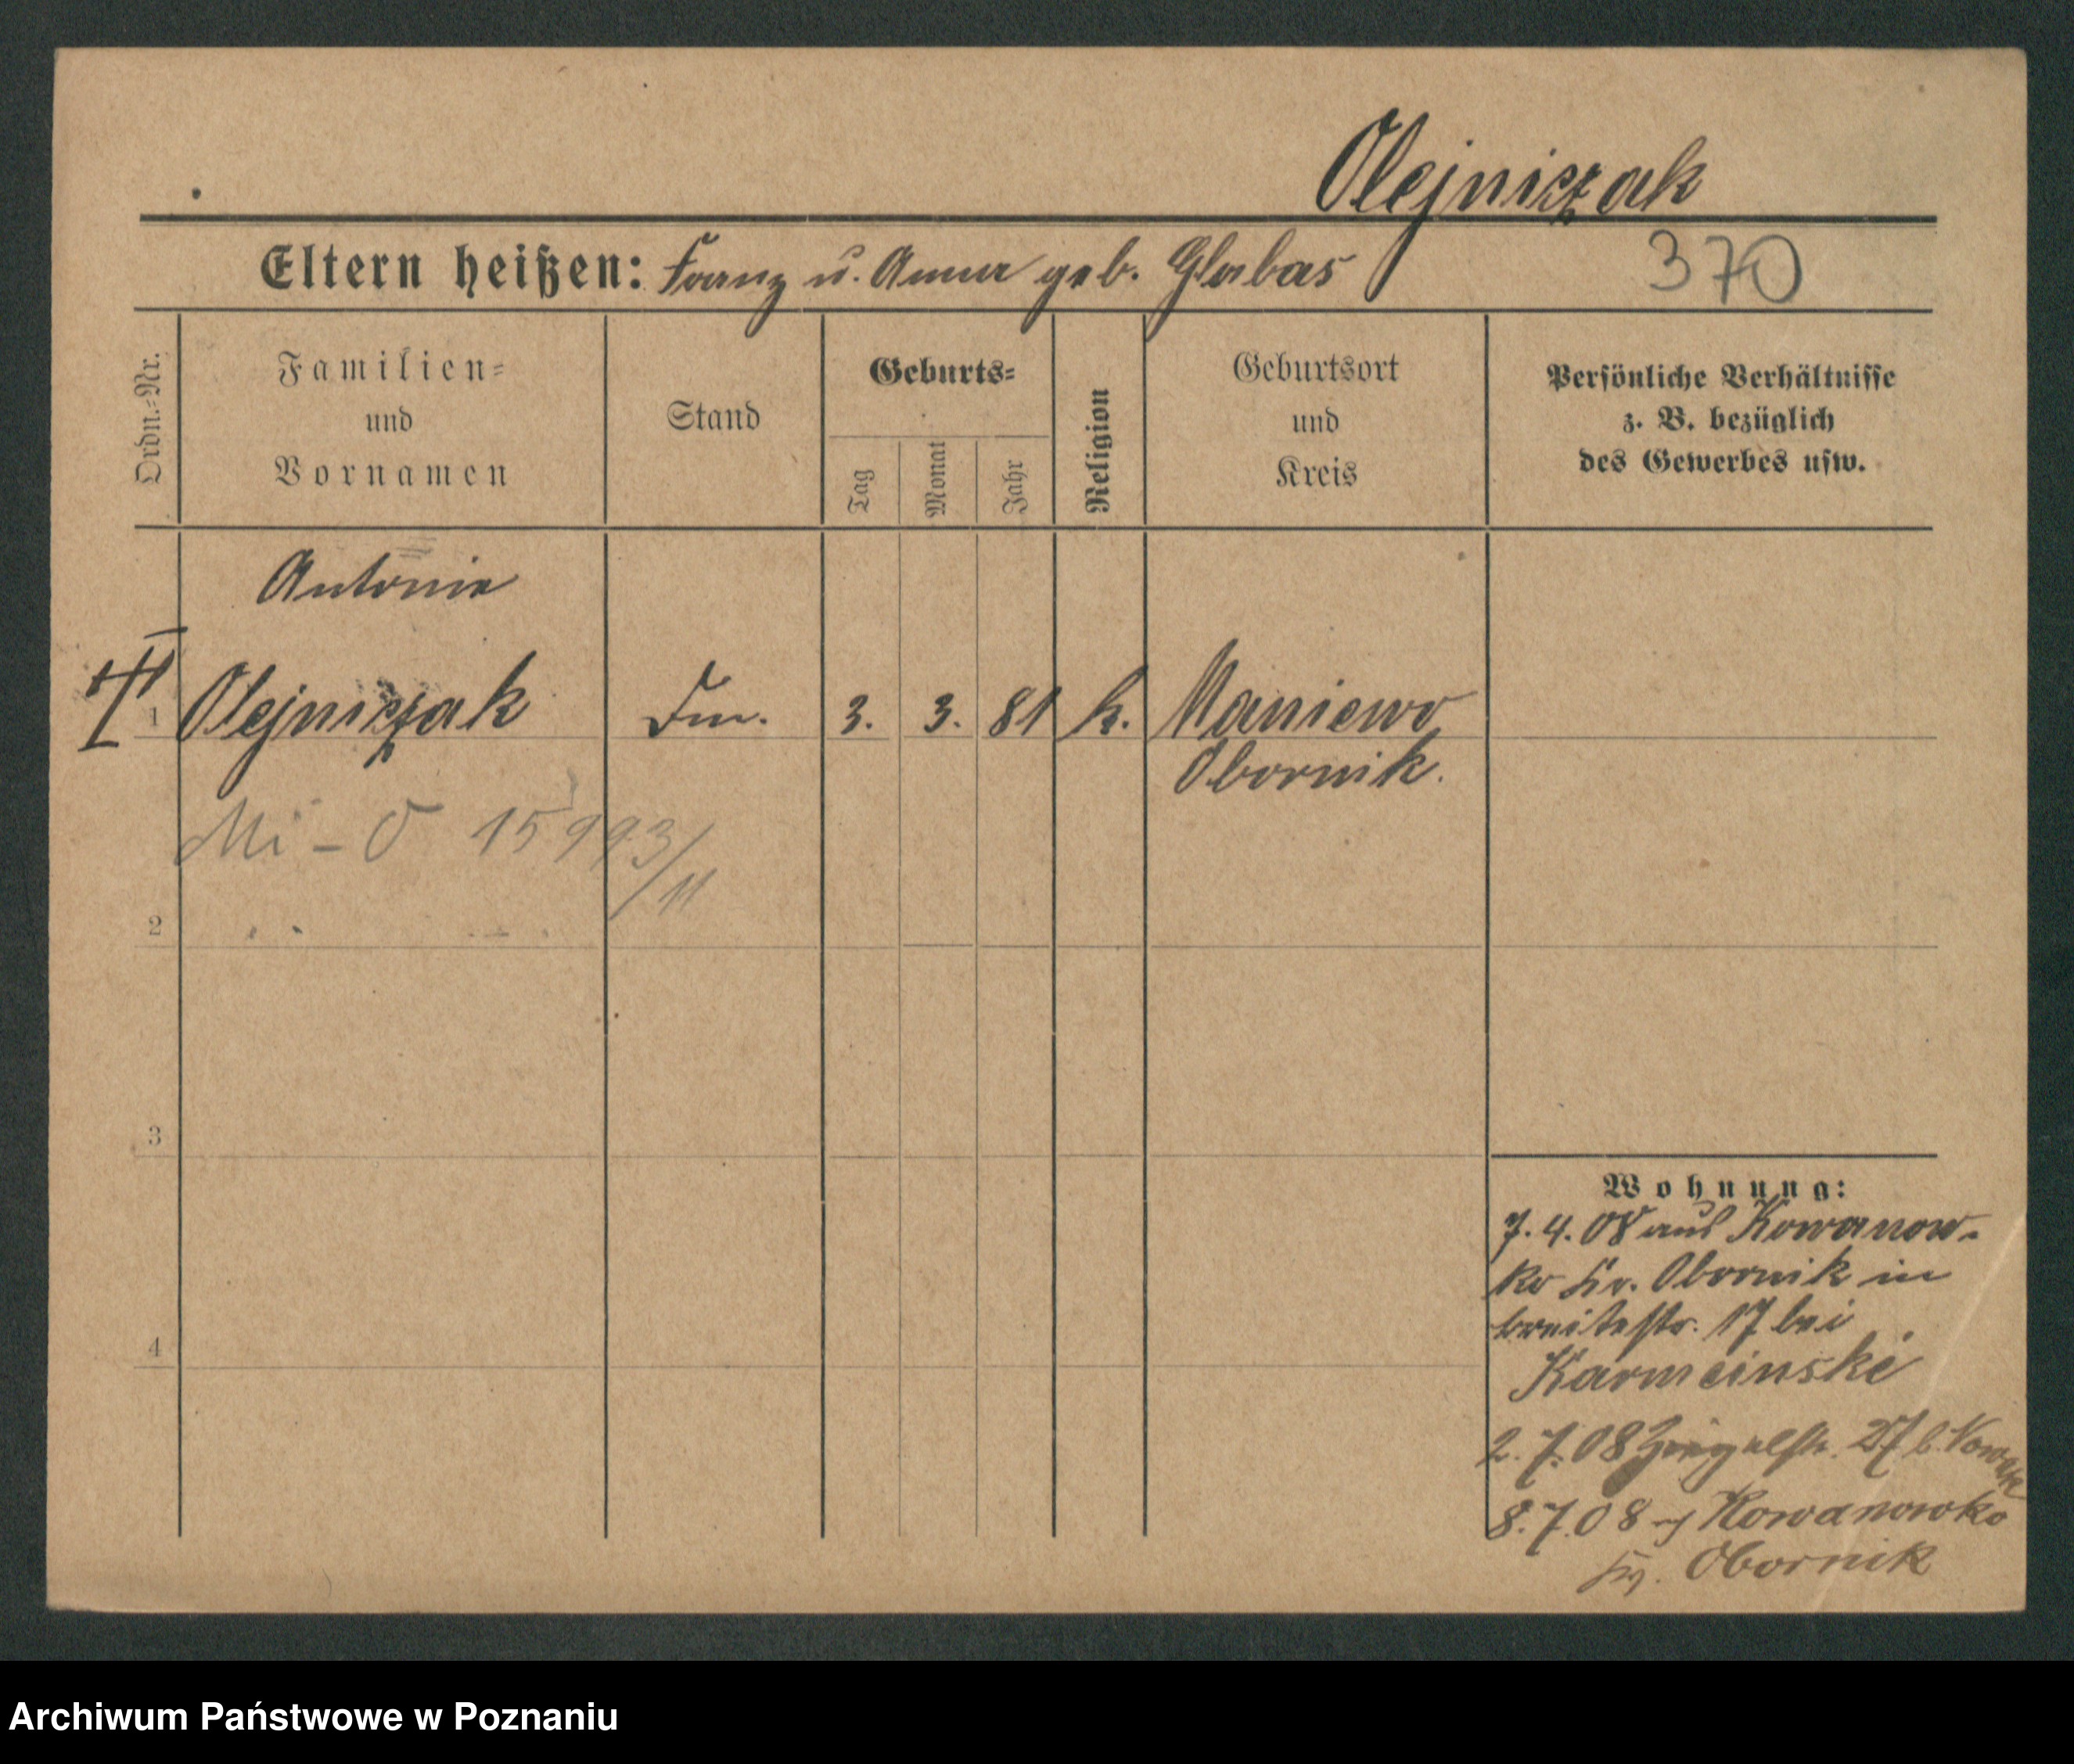 Olejniczak
Eltern heißen: Franz u. Anna geb. Glabas 370
Ordn.-Nr.
Familien-
und
Vornamen
Stand
Geburts-
Tag
Monat
Jahr
Religion
Geburtsort
und
Kreis
Persönliche Verhältnisse
z. B. bezüglich
des Gewerbes usw.
Antonie
1 Olejniczak 3. 3. 81 k. Maniewo
Obornik.
Mi - O 15993/11
2
3
4
Wohnung:
7. 4. 08 aus Kowanow-
ko Kr. Obornik in
breitestr. 17 bei
Karmeinski
2. 7. 08 27 b. Nowak
8. 7. 08 Kowanowko
Kr. Obornik
Archiwum Państwowe w Poznaniu